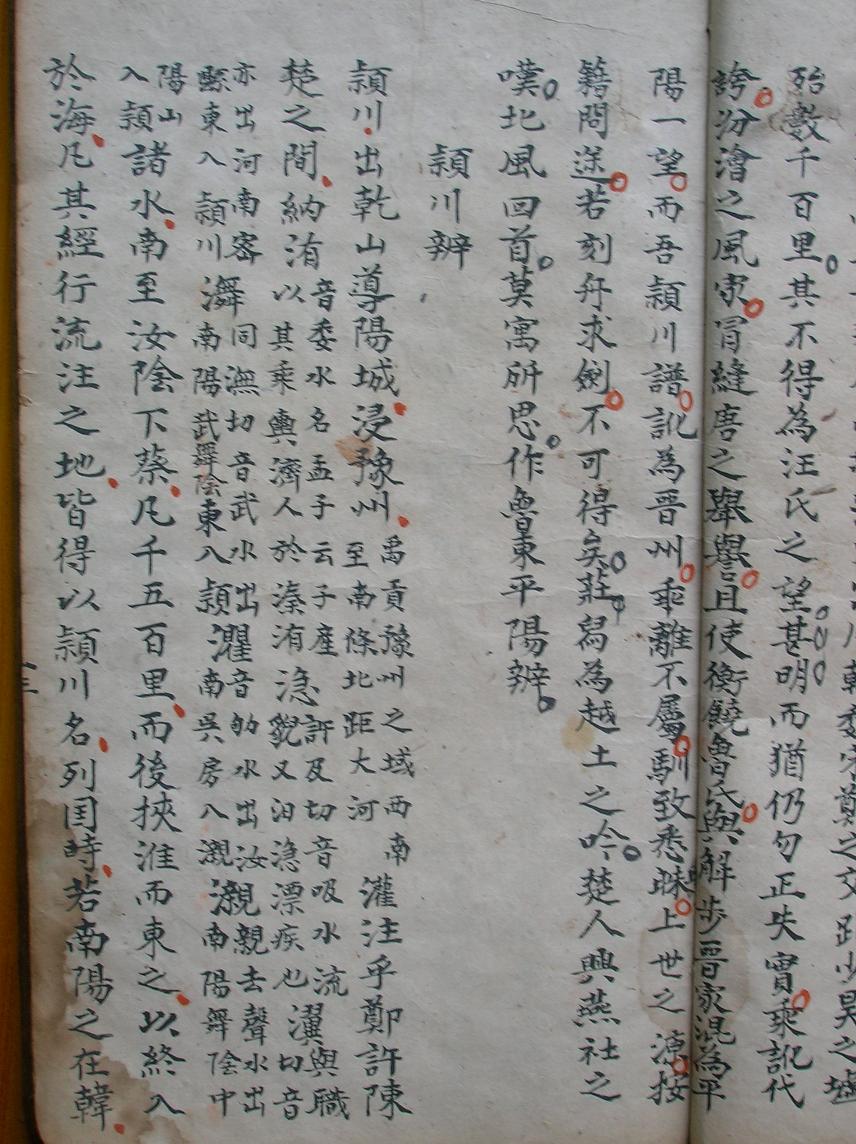 川韓委宋鄭之交距少昊之墟
殆數千百里其不得為汪氏之望甚明而猶仍勿正失實乘訛代
誇汾澮之風家冒縫唐之舉譽且使衡饒魯氏與解步晉家混為平
陽一望而吾頴川譜訛為晉州乖離不屬馴致悉昧上世之源按
籍問送若刻舟求劍不可得矣莊舄為越土之吟楚人興燕社之
嘆北風回首莫寓所思作魯東平陽辨
頴川辨
頴川出乾山導陽城浸豫州禹貢豫州之域西南至南條北距大河灌注乎鄭許陳
楚之間納洧音委水名孟子云子產以其乘輿濟人於溱洧㴔許及切音吸水流貌又汨㴔漂疾也瀷與職切音
亦出河南密縣東入頴川潕同潕切音武水出南陽武舞陰東入頴灈音劬水出汝南吳房入瀙瀙親去聲水出南陽舞陰中
陽山入頴諸水南至汝陰下蔡凡千五百里而後挾淮而東之以終入
於海凡其經行流注之地皆得以頴川名列囯時若南陽之在韓